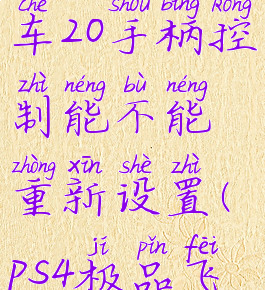 chē shǒu bǐng kòng
车20手柄控
zhì néng bù néng
制能不能
zhòng xīn shè zhì
重新设置(
jí pǐn fēi
PS4极品飞